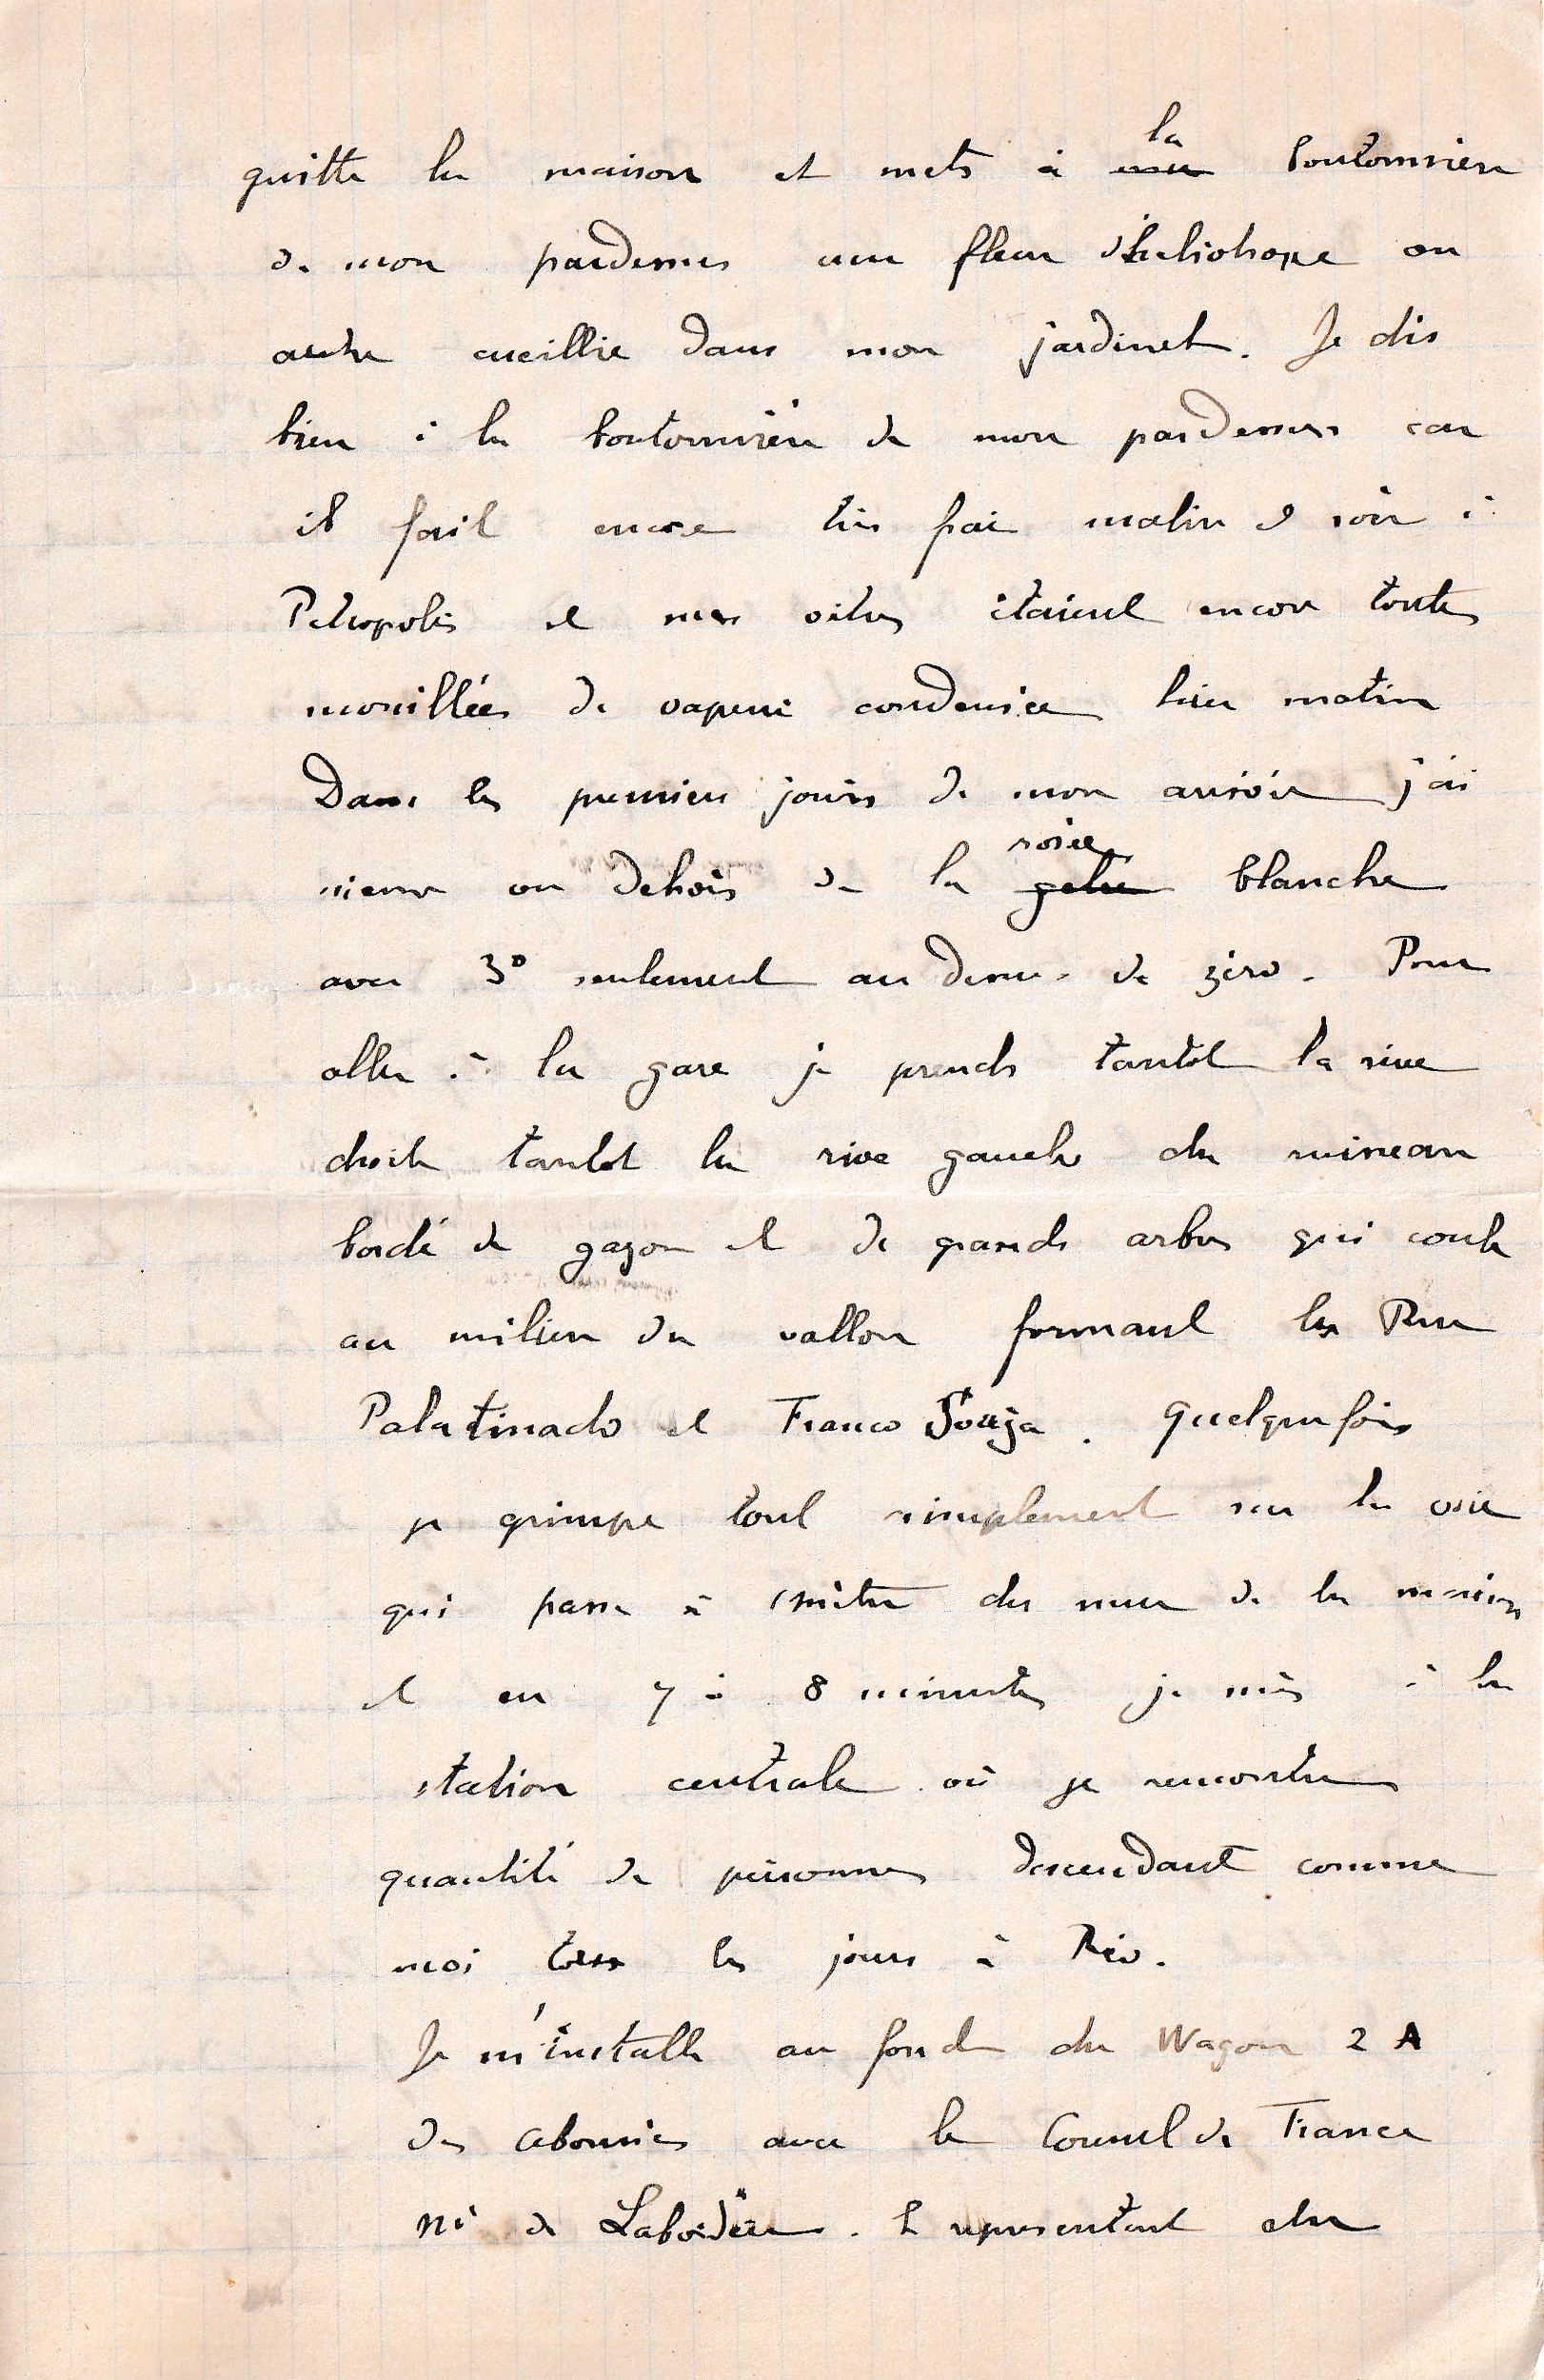 quitte la maison et mets à la boutonnière
de mon pardessus une fleur d'héliotrope ou
autre cueillie dans mon jardinet. Je dis
bien à la boutonnière de mon pardessus car
il fait encore très frais matin et soir à
Petropolis et mes vitres étaient encore toutes
mouillées de vapeur condensée hier matin
Dans les premiers jours de mon arrivée j'ai
même vu dehors de la rosée gelée blanche
avec 3° seulement au dessus de zéro. Pour
aller à la gare je prends tantôt la rive
droite tantôt la rive gauche du ruisseau
bordé de gazon et de grands arbres qui coule
au milieu du vallon formant les Rue
Palatinado et Franco Souza. Quelquefois
je grimpe tout simplement sur la voie
qui passe à mètre du mur de la maison
et en 7 à 8 minutes je suis à la
station centrale où je rencontre
quantité de personnes descendant comme
moi tous les jours à Rio.
Je m'installe au fond du Wagon 2 A
des abonnés avec le Consul de France
Mr de Labordère. Le représentant du